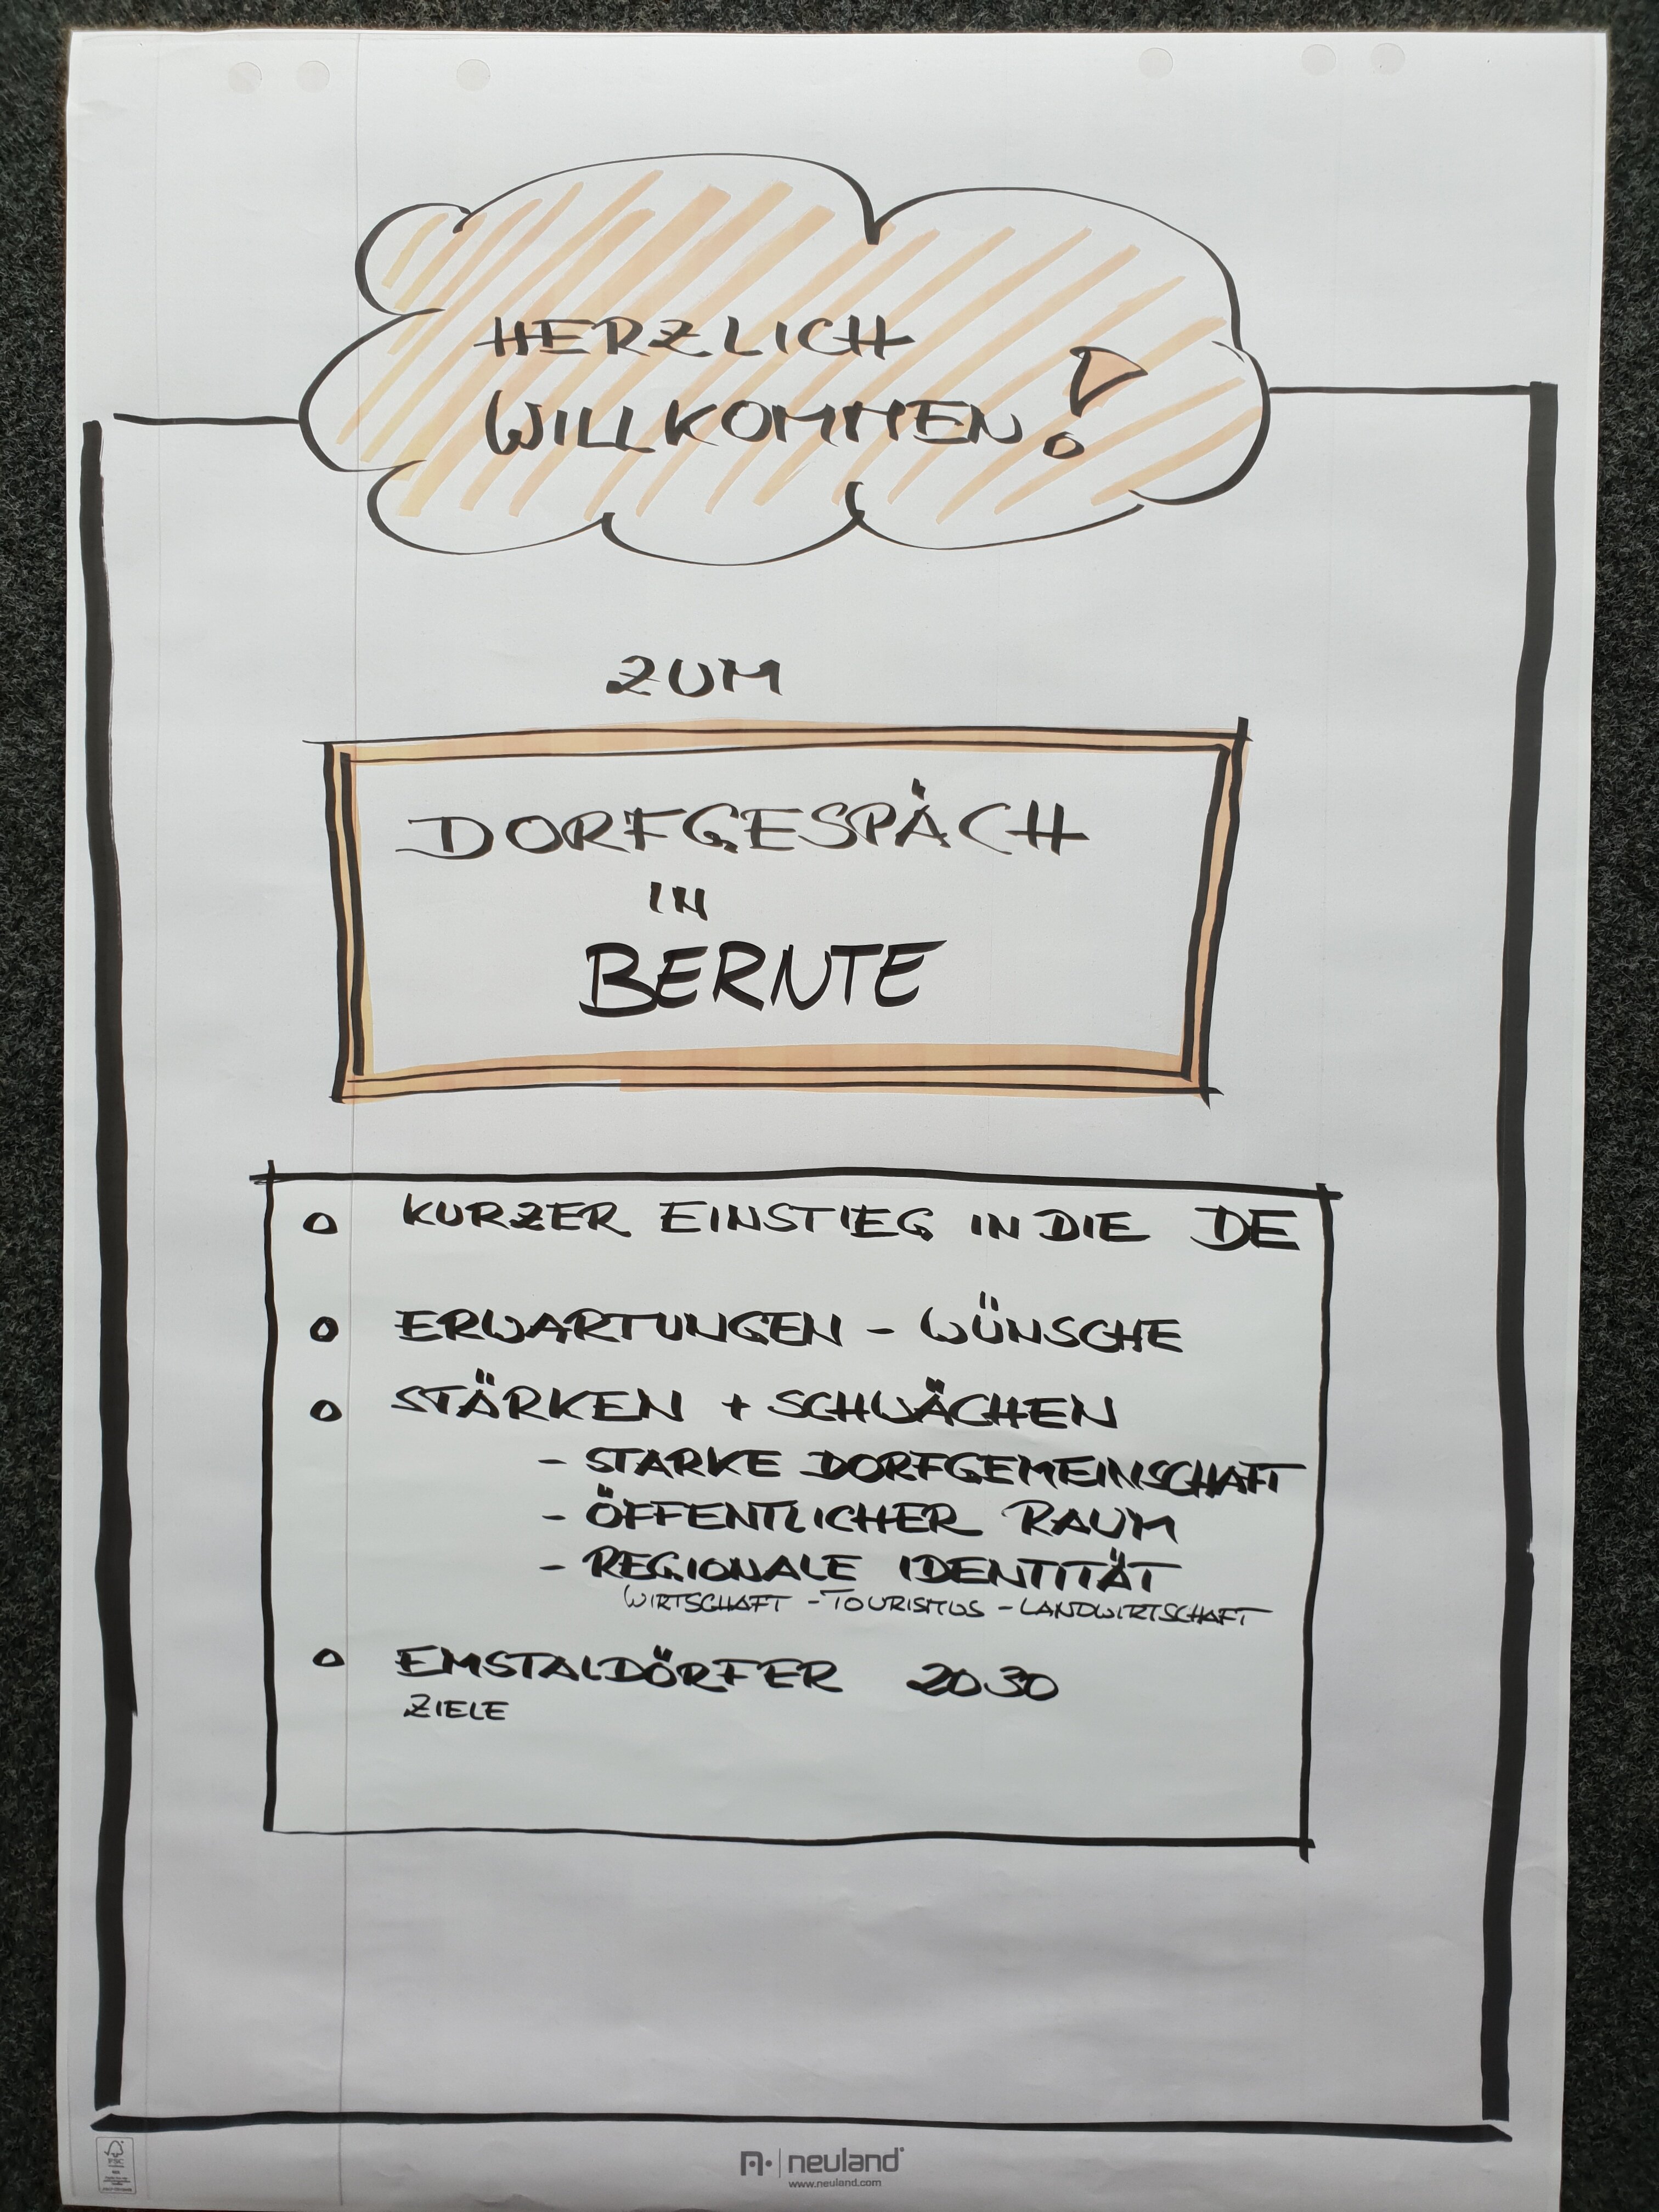 HERZLICH
WILLKOMMEN!
ZUM
DORFGESPÄCH
IN
BERNTE
o KURZER EINSTIEG IN DIE DE
o ERWARTUNGEN - WÜNSCHE
o STÄRKEN + SCHWÄCHEN
- STARKE DORFGEMEINSCHAFT
- ÖFFENTLICHER RAUM
- REGIONALE IDENTITÄT
WIRTSCHAFT - TOURISMUS - LANDWIRTSCHAFT
o EMSTALDÖRFER 2030
ZIELE
FSC
neuland
www.neuland.com